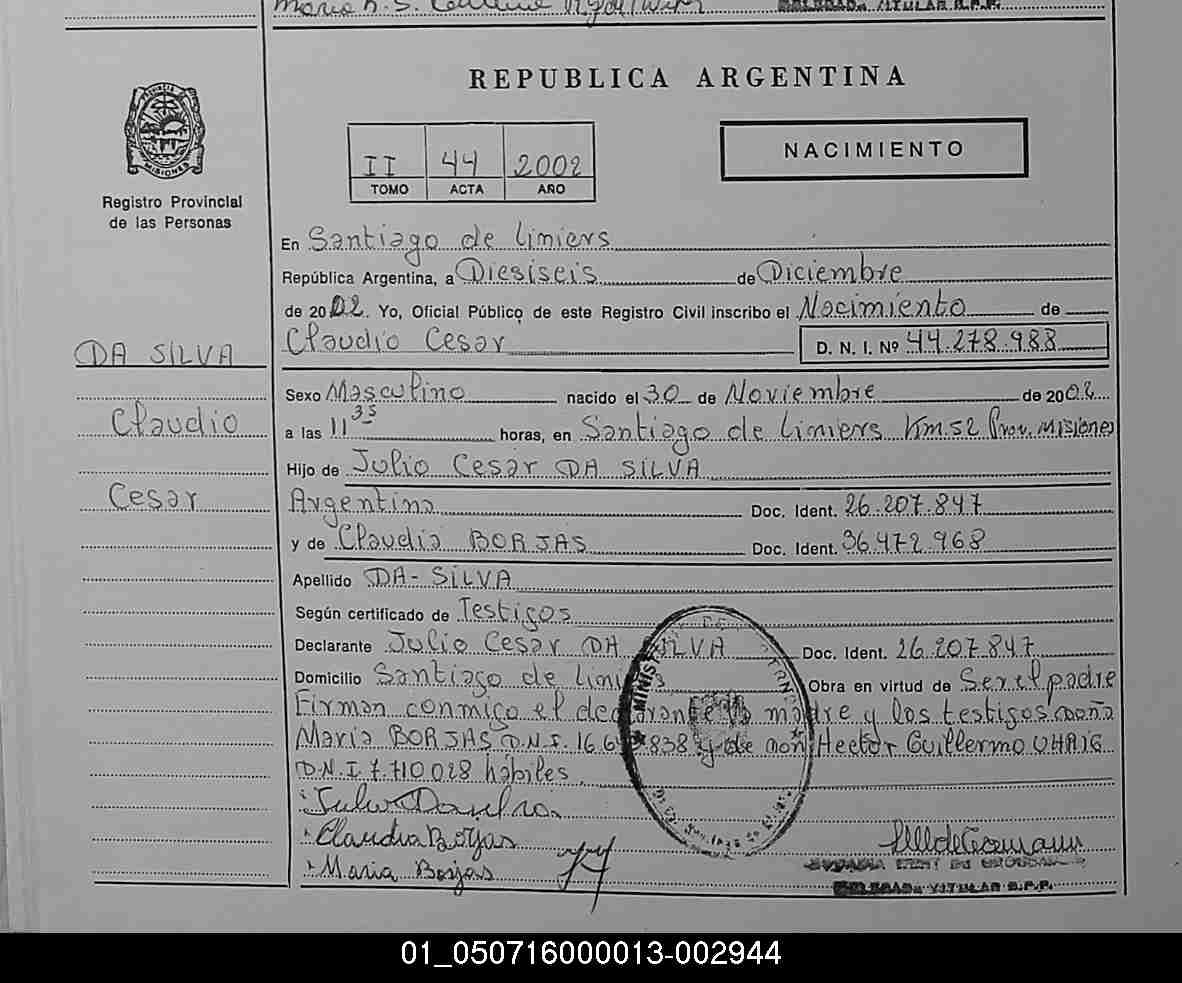 REPUBLICA ARGENTINA
PROVINCIA DE
MISIONES
Registro Provincial
de las Personas
II 44 2002
TOMO ACTA AÑO
NACIMIENTO
En Santiago de Liniers
República Argentina, a Diesiseis de Diciembre
de 2002. Yo, Oficial Público de este Registro Civil inscribo el Nacimiento de
Claudio Cesar D. N. I. Nº 44.278.988
DA SILVA
Claudio
Cesar
Sexo Masculino nacido el 30 de Noviembre de 2002
a las 11 35 horas, en Santiago de Liniers Km. 52 Prov. Misiones
Hijo de Julio Cesar DA SILVA
Argentino Doc. Ident. 26.207.847
y de Claudia BORJAS Doc. Ident. 36.472.968
Apellido DA-SILVA
Según certificado de Testigos
Declarante Julio Cesar DA SILVA Doc. Ident. 26.207.847
Domicilio Santiago de Liniers Obra en virtud de Ser el padre
Firman conmigo el declarante la madre y los testigos doña
Maria BORJAS D.N.I. 16.6 838 y de don Hector Guillermo
D.N.I 7.710.028 hábiles.
Claudia Borjas
Maria Borjas
TITULAR R.P.P.
01_050716000013-002944